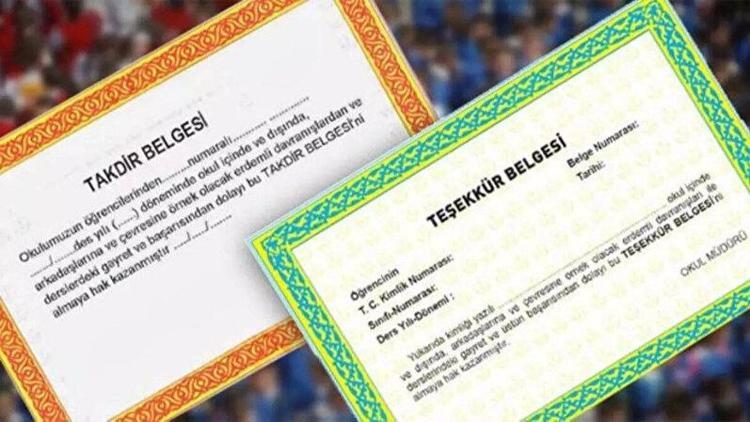 TAKDİR BELGESİ
Okulumuzun öğrencilerinden..........numaralı............. ............
......./.......des yılı (.....) döneminde okul içinde ve dışında,
arkadaşlarına ve çevresine örnek olacak erdemli davranışlardan ve
derslerdeki gayret ve başarısından dolayı bu TAKDİR BELGESİ'ni
almaya hak kazanmıştır ..../..../......
TEŞEKKÜR BELGESİ
Belge Numarası:
Tarihi:
Öğrencinin
T. C. Kimlik Numarası:
Sınıfı-Numarası:
Ders Yılı-Dönemi :
Yukarıda kimliği yazılı ................................................ okul içinde
ve dışında, arkadaşlarına ve çevresine örnek olacak erdemli davranışları ile
derslerindeki gayret ve üstün başarısından dolayı bu TEŞEKKÜR BELGESİ'ni
almaya hak kazanmıştır.
OKUL MÜDÜRÜ